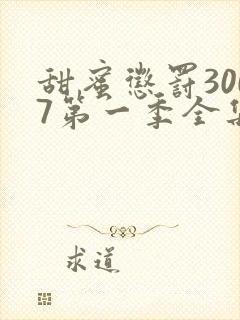 甜蜜懲罰300
7第一季全集
求道